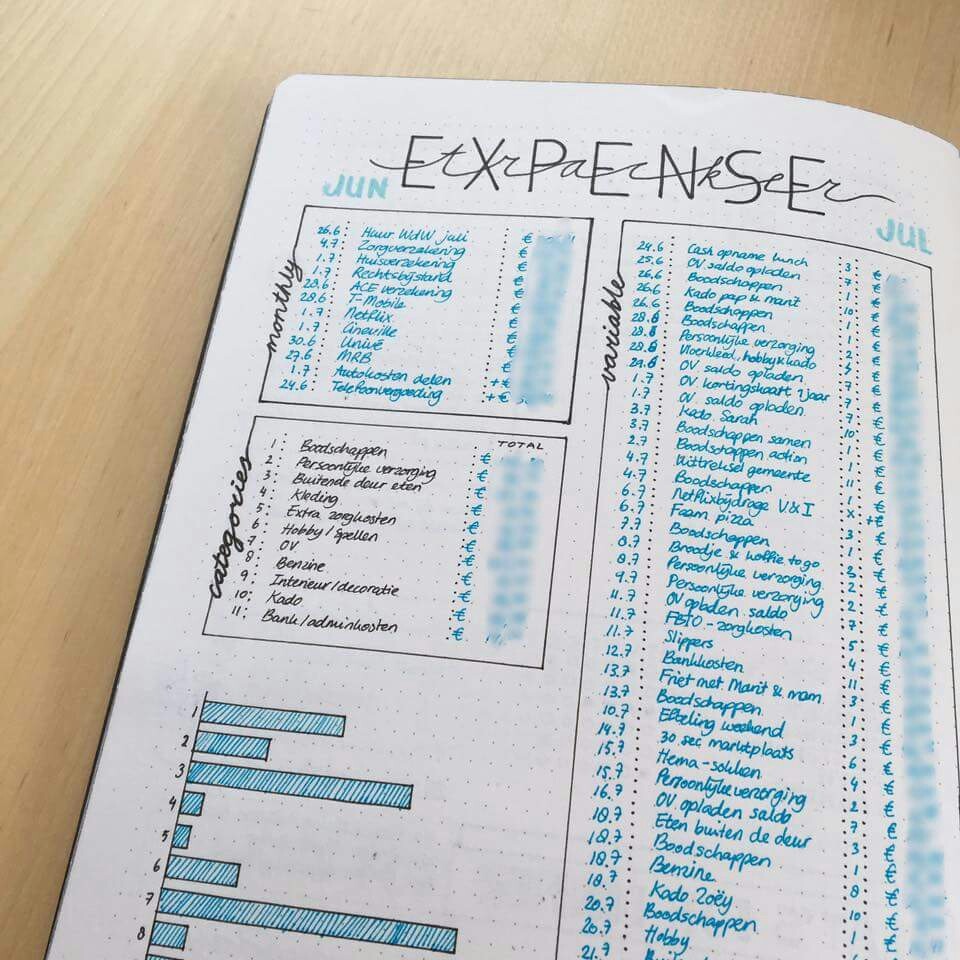 EXPENSE
tracker
JUN
JUL
monthly
26.6 : Huur WdW juli : €
4.7 : Zorgverzekering : €
1.7 : Huisverzekering : €
1.7 : Rechtsbijstand : €
28.6 : ACE verzekering : €
28.6 : T-Mobile : €
1.7 : Netflix : €
1.7 : Cineville : €
30.6 : Univé : €
27.6 : MRB : €
1.7 : Autokosten delen : +€
24.6 : Telefoonvergoeding : +€
categories
TOTAL
1 : Boodschappen : €
2 : Persoonlijke verzorging : €
3 : Buitende deur eten : €
4 : Kleding : €
5 : Extra zorgkosten : €
6 : Hobby/Spellen : €
7 : OV : €
8 : Benzine : €
9 : Interieur/decoratie : €
10 : Kado : €
11 : Bank/adminkosten : €
1
2
3
4
5
6
7
8
variable
24.6 : Cash opname lunch : 3 : €
25.6 : OV saldo opladen : 7 : €
26.6 : Boodschappen : 1 : €
26.6 : Kado pap & marit : 10 : €
26.6 : Boodschappen : 1 : €
28.6 : Boodschappen : 1 : €
28.6 : Persoonlijke verzorging : 2 : €
28.6 : Vloerkleed, hobby & kado : €
29.6 : OV saldo opladen : 7 : €
1.7 : OV kortingskaart 1 jaar : 7 : €
1.7 : OV saldo opladen : 7 : €
3.7 : Kado Sarah : 10 : €
3.7 : Boodschappen samen : 1 : €
2.7 : Boodschappen action : 1 : €
4.7 : Uittreksel gemeente : 11 : €
4.7 : Boodschappen : 1 : €
6.7 : Netflixbijdrage V&I : x : +€
6.7 : Foam pizza : 3 : €
7.7 : Boodschappen : 1 : €
8.7 : Broodje & koffie to go : 3 : €
8.7 : Persoonlijke verzorging : 2 : €
9.7 : Persoonlijke verzorging : 2 : €
11.7 : OV opladen saldo : 7 : €
11.7 : FBTO - zorgkosten : 5 : €
11.7 : Slippers : 4 : €
12.7 : Bankkosten : 11 : €
13.7 : Friet met Marit & mam : 3 : €
13.7 : Boodschappen : 1 : €
10.7 : Efteling weekend : 3 : €
14.7 : 30 sec marktplaats : 6 : €
15.7 : Hema-sokken : 4 : €
15.7 : Persoonlijke verzorging : 2 : €
16.7 : OV opladen saldo : 7 : €
18.7 : Eten buiten de deur : 3 : €
18.7 : Boodschappen : 1 : €
18.7 : Benzine : 8 : €
18.7 : Kado Zoëy : 10 : €
20.7 : Boodschappen : 1 : €
20.7 : Hobby
21.7